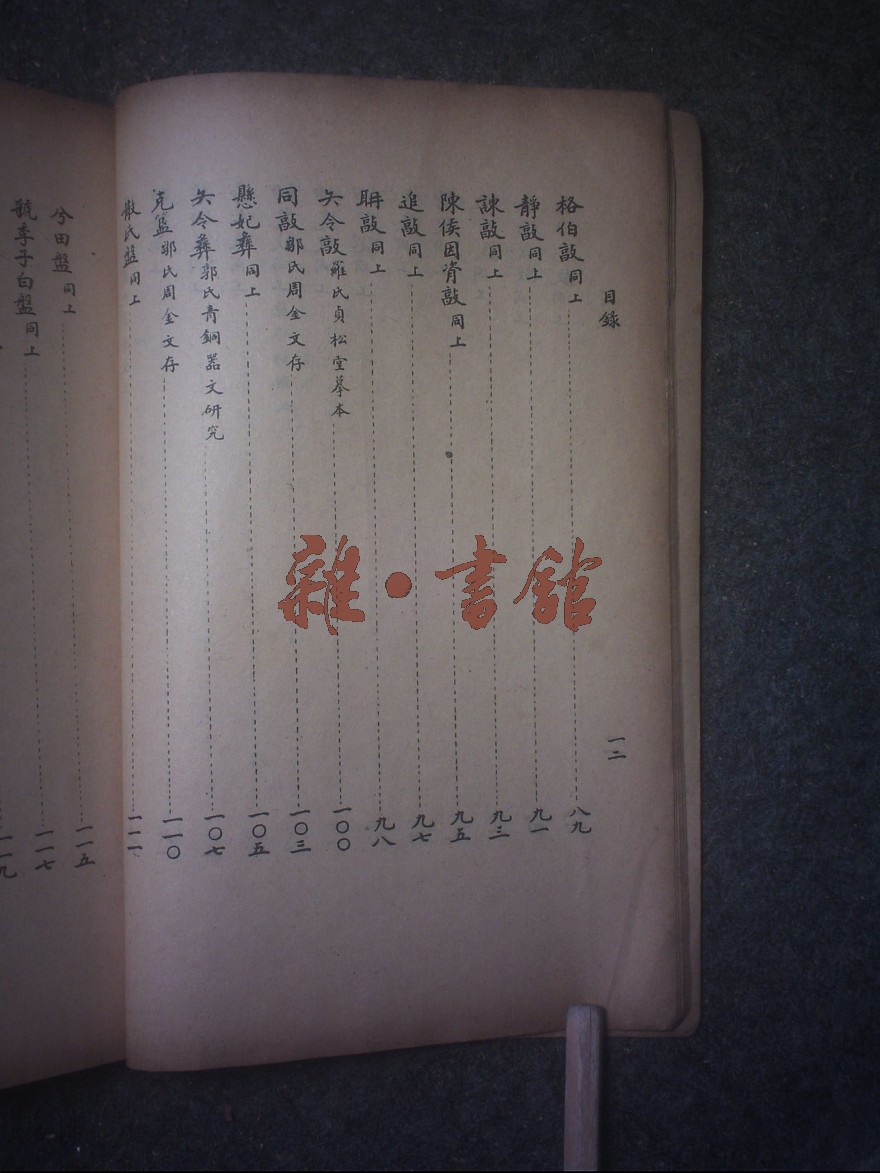 目錄
一二
格伯敦 同上 八九
靜敦 同上 九一
諫敦 同上 九三
陳侯因𰯼敦 同上 九五
追敦 同上 九七
敦 同上 九八
矢令敦 羅氏貞松堂摹本 一〇〇
同敦 鄒氏周金文存 一〇三
縣妃彝 同上 一〇五
矢令彝 郭氏青銅器文研究 一〇七
克盨 鄒氏周金文存 一一〇
散氏盤 同上 一一一
兮田盤 同上 一一五
虢季子白盤 同上 一一七
一一九
雜·書館